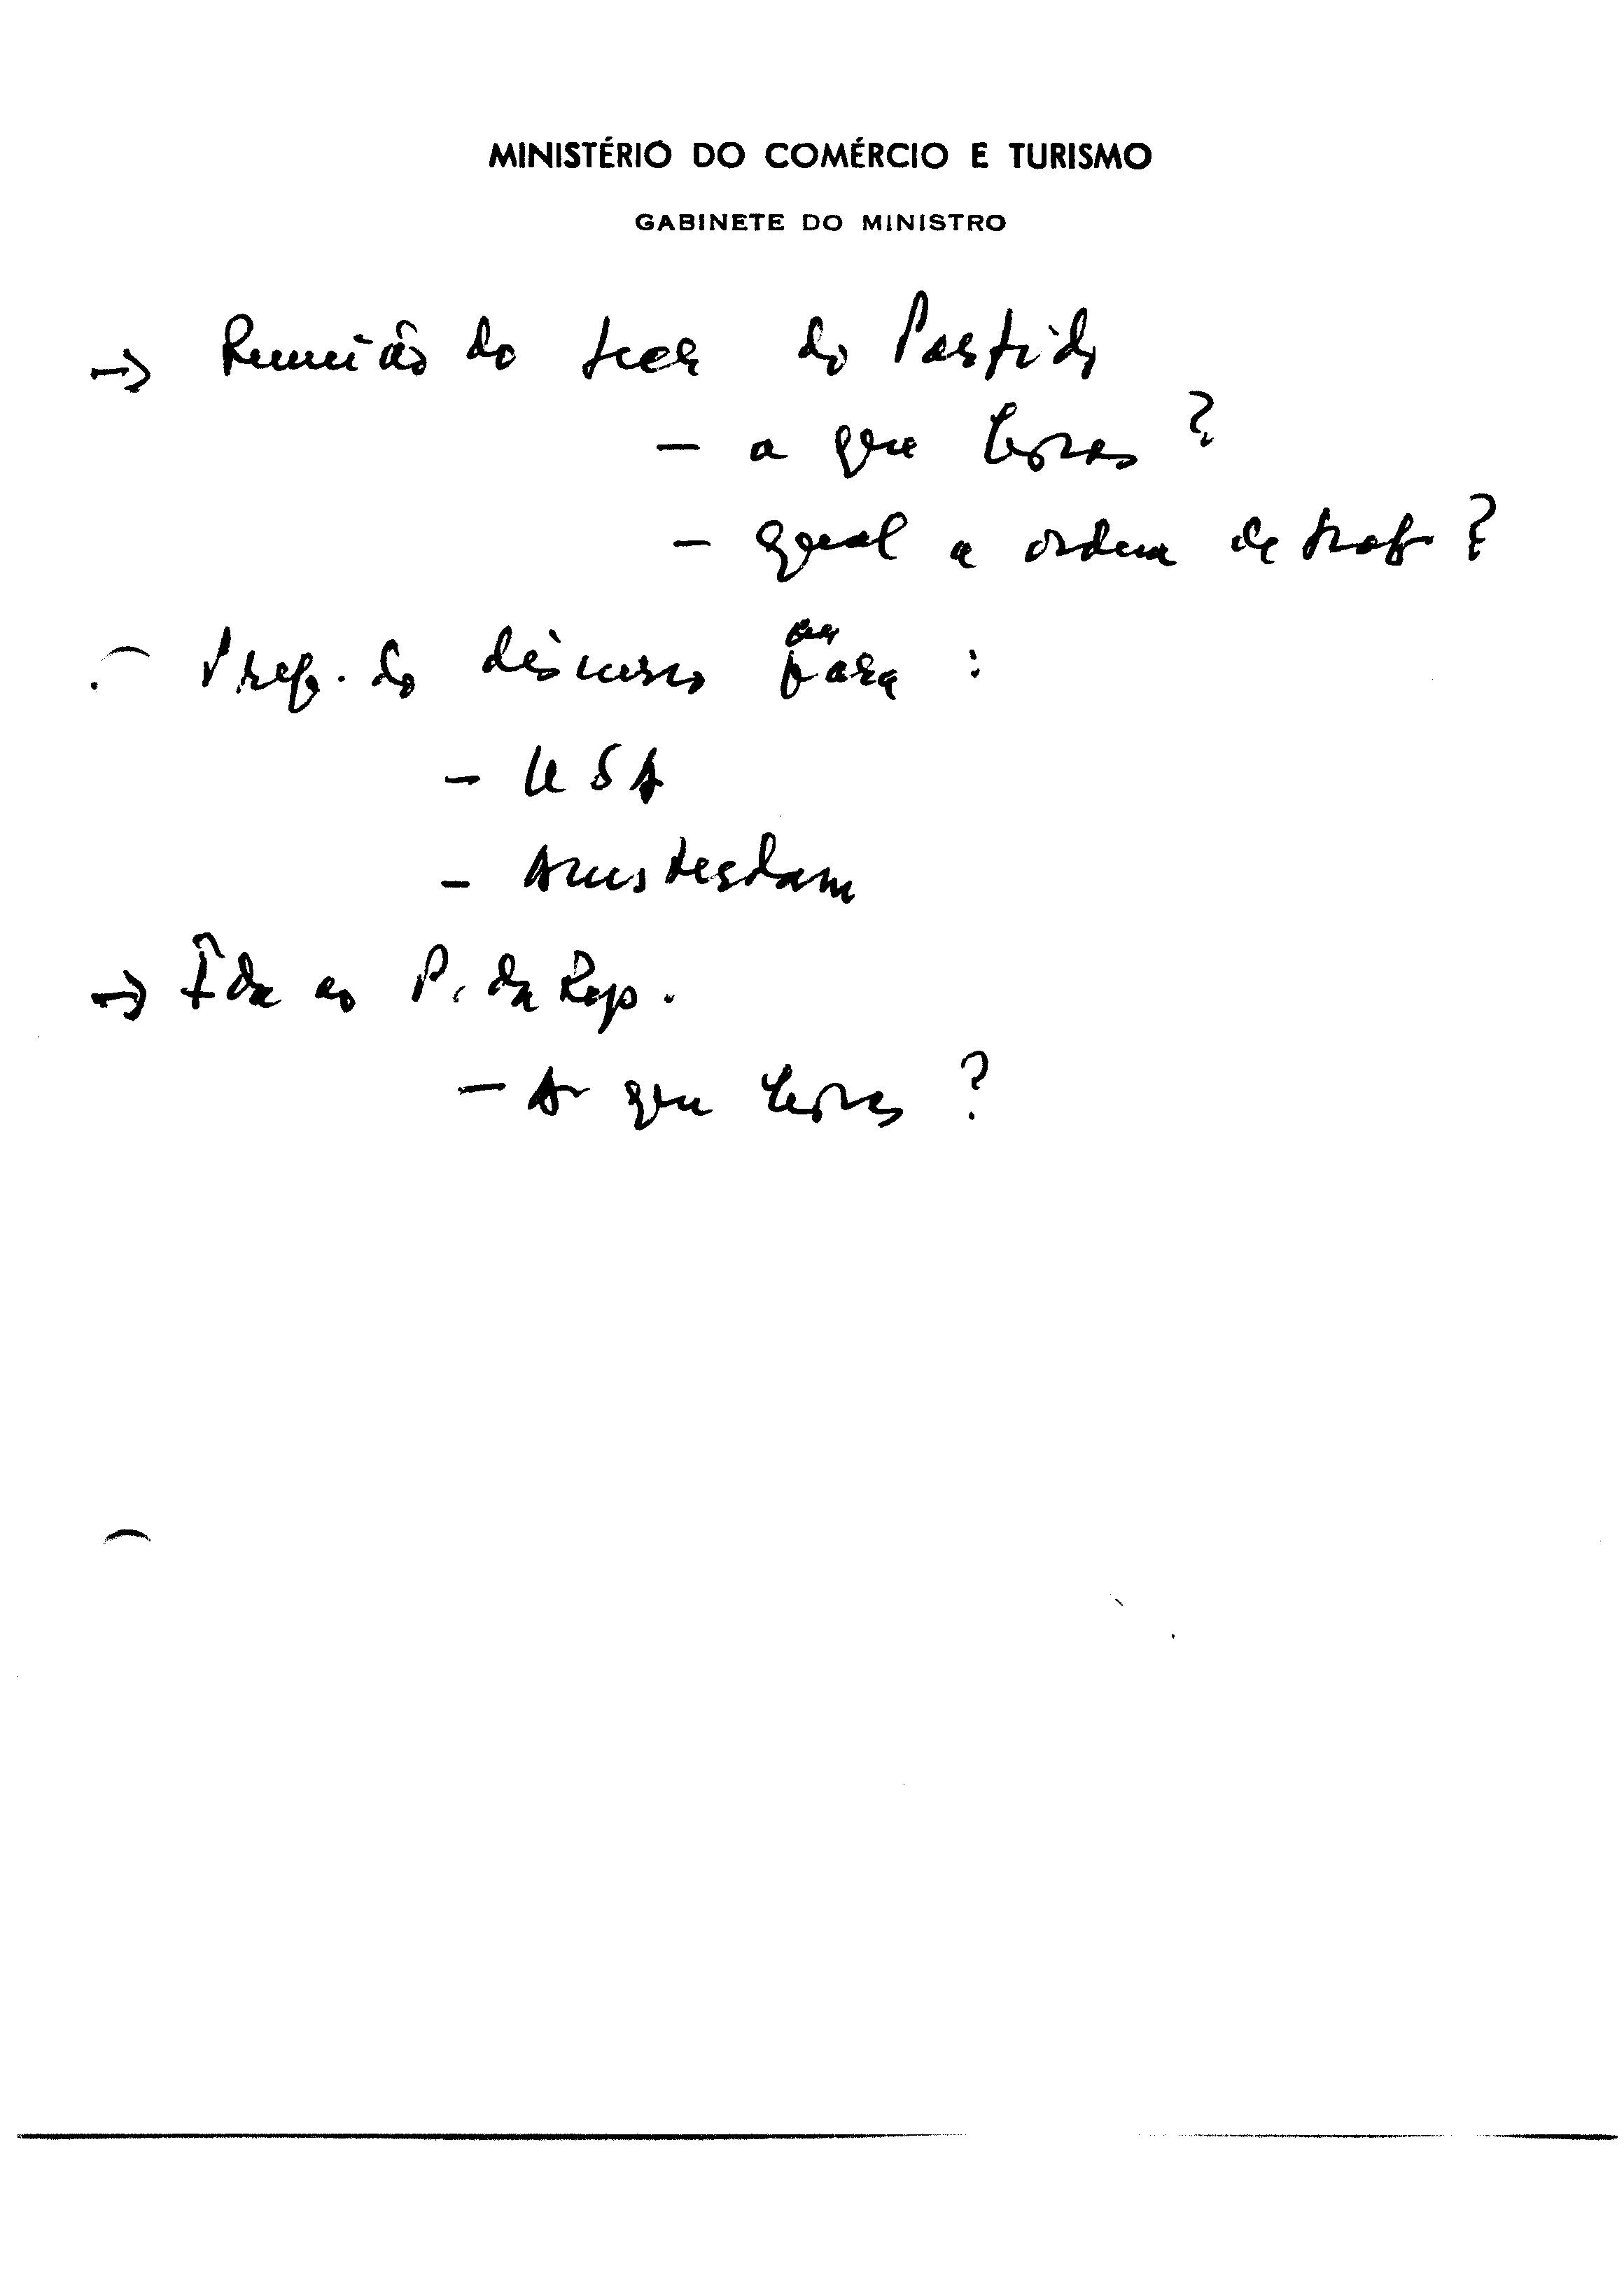 MINISTÉRIO DO COMÉRCIO E TURISMO
GABINETE DO MINISTRO
→ Reunião do do Partido
- a que horas?
- Qual a ordem de trab?
Prep. do discurso para:
- USA
- Amsterdam
→ Ida ao P. da Rep.
- A que horas?